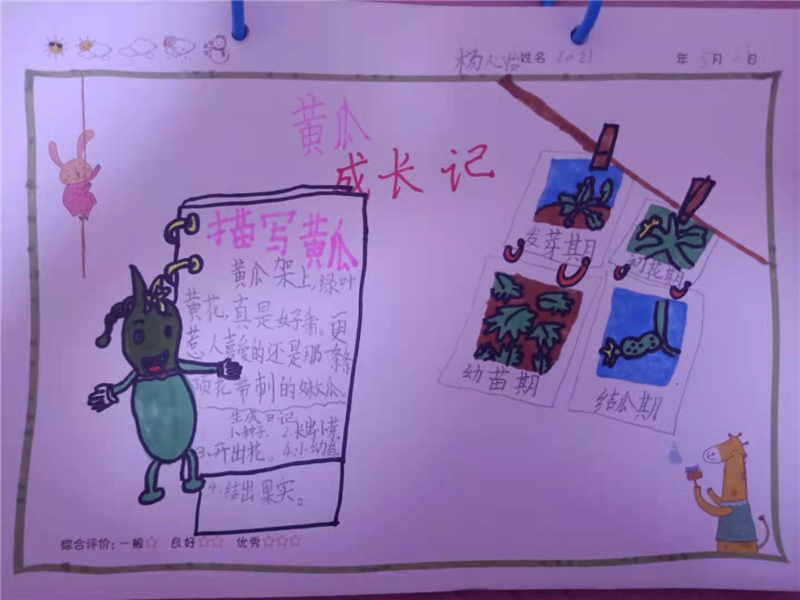 杨人怡 姓名 2021 年 5月 日
黄瓜
成长记
描写黄瓜
黄瓜架上,绿叶
黄花,真是好看,更
惹人喜爱的还是那条条
顶花带刺的嫩瓜。
生成日记
1.小种子. 2.长出小芽.
3.开出花。 4.小幼苗
4.结出果实。
发芽期
初花期
幼苗期
结瓜期
综合评价:一般☆ 良好☆☆ 优秀☆☆☆